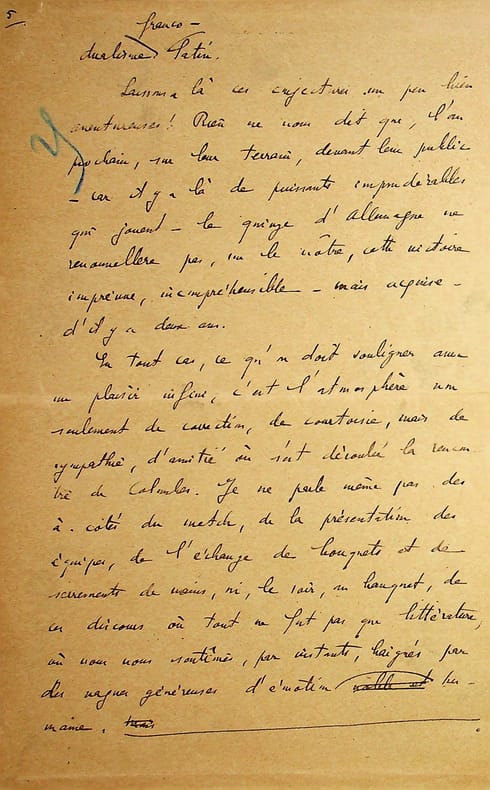 5
franco-
dualisme latin.
Laissons là ces conjectures un peu bien
aventureuses! Rien ne nous dit que, l'an
prochain, sur leur terrain, devant leur public
- car il y a là de puissants impondérables
qui jouent - le quinze d'Allemagne ne
renouvellera pas, sur le nôtre, cette victoire
imprévue, incompréhensible - mais acquise -
d'il y a deux ans.
En tout cas, ce qu'on doit souligner avec
un plaisir infini, c'est l'atmosphère non
seulement de correction, de courtoisie, mais de
sympathie, d'amitié où s'est déroulée la rencon-
tre de Colombes. Je ne parle même pas des
à-côtés du match, de la présentation des
équipes, de l'échange de bouquets et de
serrements de mains, ni, le soir, au banquet, de
ces discours où tout ne fut pas que littérature,
où nous nous sentîmes, par instants, baignés par
des vagues généreuses d'émotion noble et hu-
maine. mais